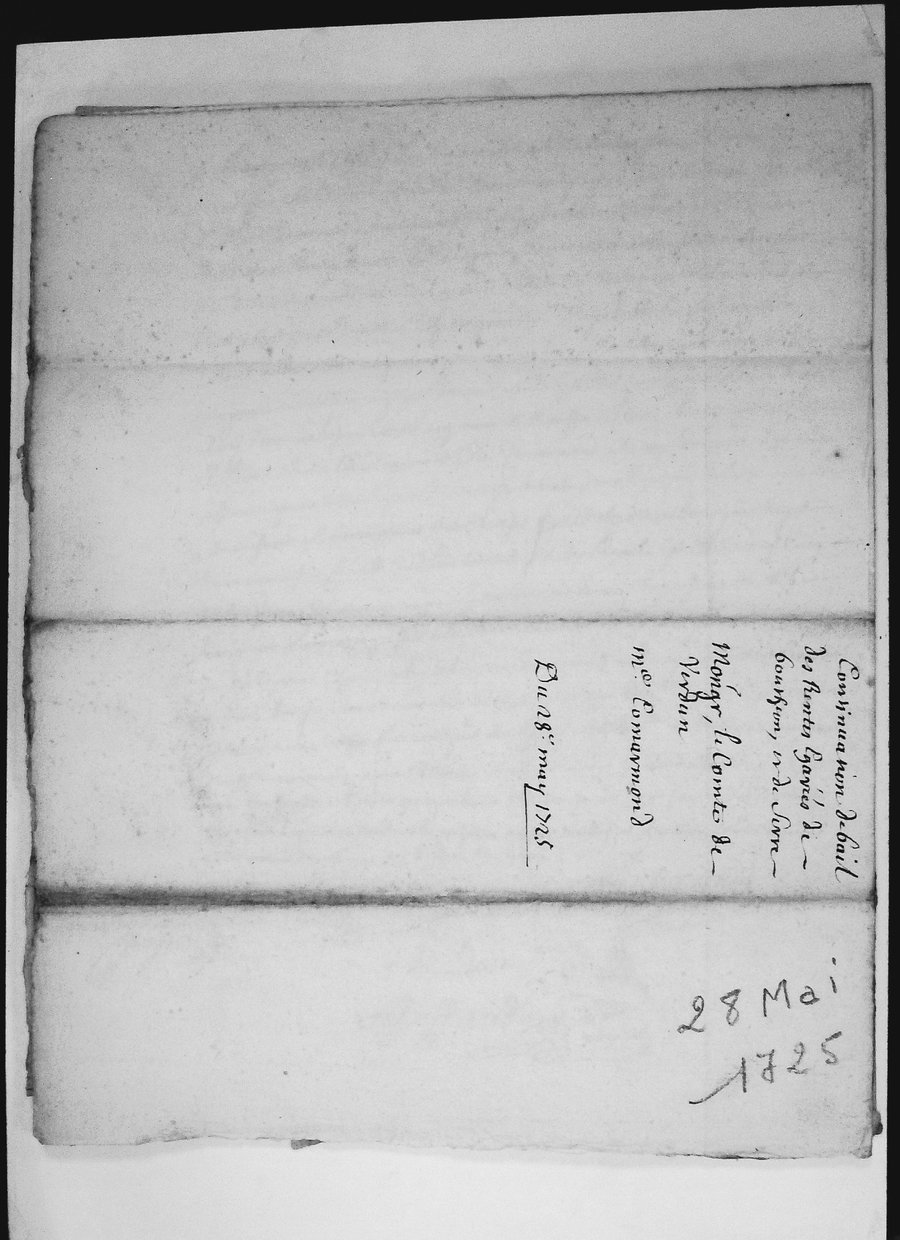 Continuation de bail
des Rentes Egarés de
bourbon, et de Serre
Mongr, le Comte de
Verdun
me. Comarmond
Du 28e. may 1725
28 Mai
1725